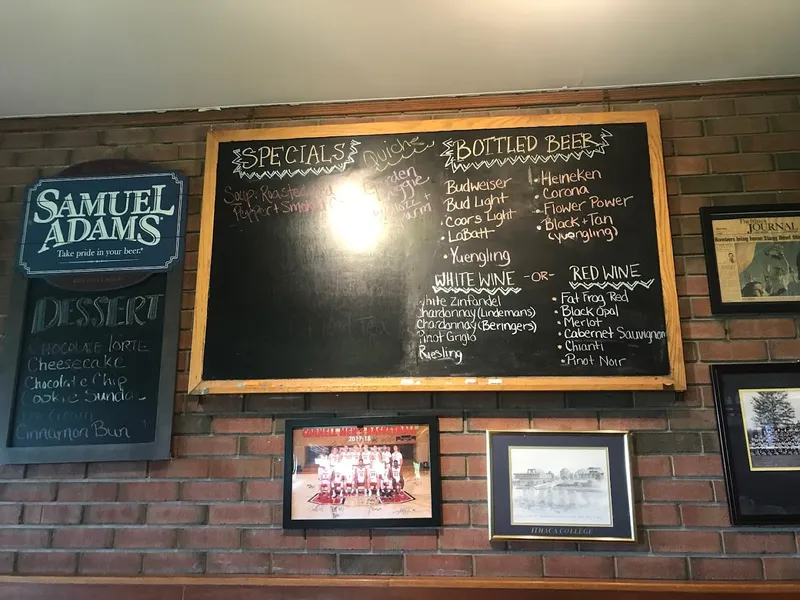 SAMUEL
ADAMS
Take pride in your beer.
DESSERT
Cheesecake
Chocolate Chip
Cookie Sundae
Cinnamon Bun
SPECIALS
Quiche
Soup: Roasted
Pepper + Smoked
BOTTLED BEER
Budweiser
Bud Light
Coors Light
LaBatt
Yuengling
Heineken
Corona
Flower Power
Black + Tan
(yuengling)
WHITE WINE -OR- RED WINE
White Zinfandel
Chardonnay (Lindemans)
Chardonnay (Beringers)
Pinot Grigio
Riesling
Fat Frog Red
Black Opal
Merlot
Cabernet Sauvignon
Chianti
Pinot Noir
JOURNAL
CORNELL MEN'S BASKETBALL
2017-18
ITHACA COLLEGE